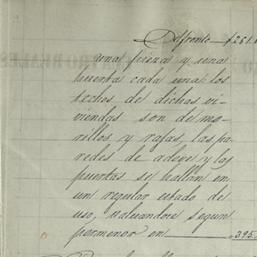 Al frente $261.
una pieza y una
puerta cada una los
techos de dichas vi-
viendas son de mo-
rillos y rajas, las pa-
redes de adove y las
puertas se hallan en
un regular estado de
uso, valuandose segun
pormenor en 395.